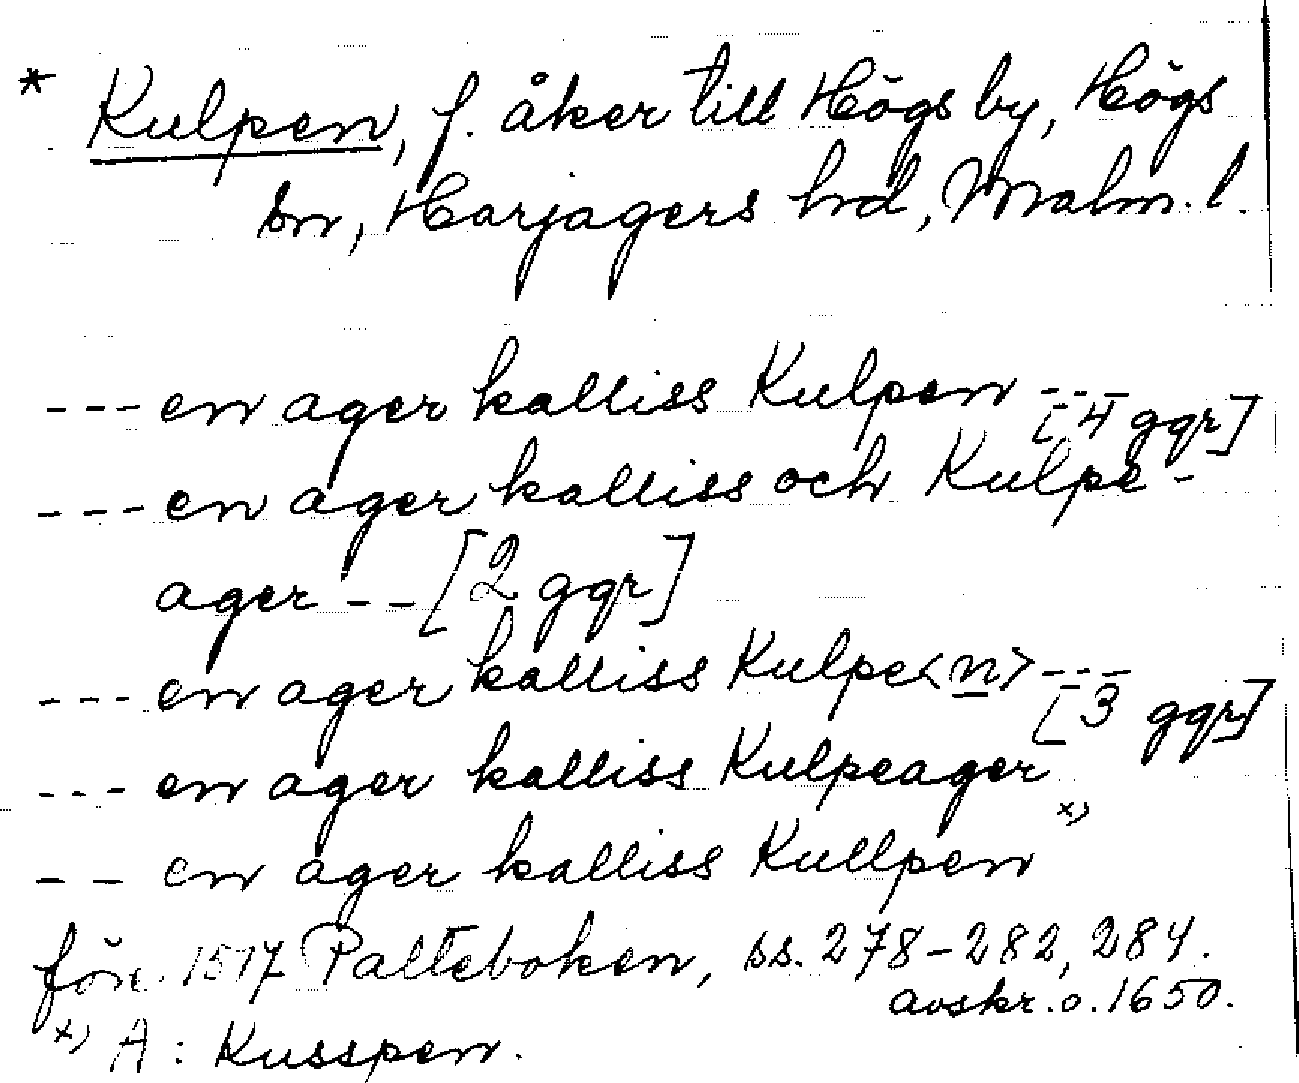 * Kulpen, f. åker till Högs by, Högs
sn, Harjagers hrd, Malm. l.
--- en ager kalliss Kulpen ---
[4 ggr]
--- en ager kalliss och Kulpe-
ager -- [2 ggr]
--- en ager kalliss Kulpe<n> ---
[3 ggr]
--- en ager kalliss Kulpeager
-- en ager kalliss Kullpen x)
för. 1517 Palteboken, ss. 278-282, 284.
avskr. o. 1650.
x) A: Kusspen.